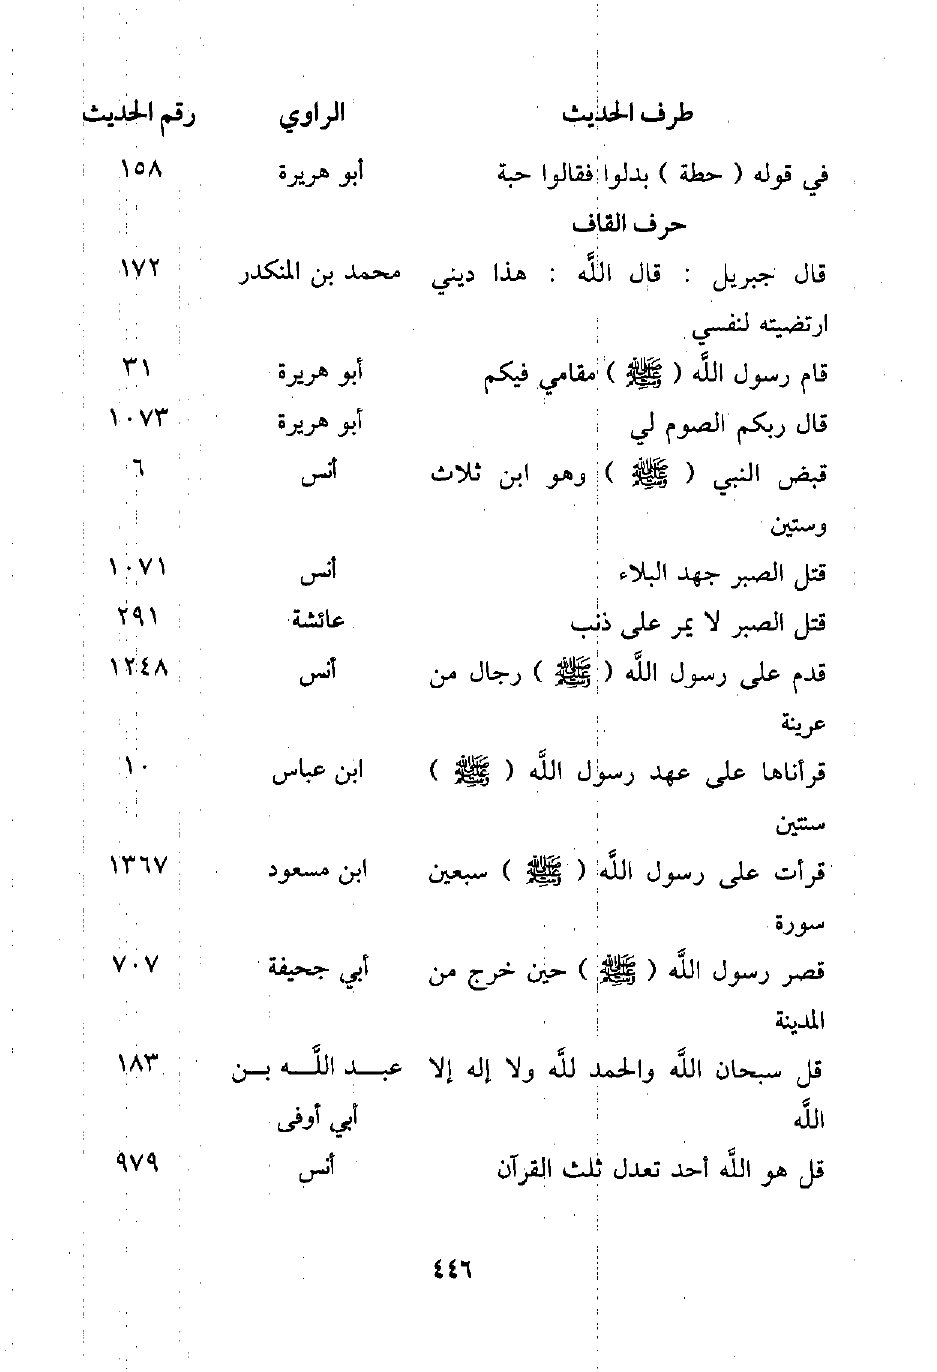 طرف الحديث الراوي رقم الحديث
في قوله ( حطة ) بدلوا فقالوا حبة أبو هريرة ١٥٨
حرف القاف
قال جبريل : قال اللَّه : هذا ديني محمد بن المنكدر ١٧٢
ارتضيته لنفسي
قام رسول اللَّه ( ﷺ ) مقامي فيكم أبو هريرة ٣١
قال ربكم الصوم لي أبو هريرة ١٠٧٣
قبض النبي ( ﷺ ) وهو ابن ثلاث أنس ٦
وستين
قتل الصبر جهد البلاء أنس ١٠٧١
قتل الصبر لا يمر على ذنب عائشة ٢٩١
قدم على رسول اللَّه ( ﷺ ) رجال من أنس ١٢٤٨
عرينة
قرأناها على عهد رسول اللَّه ( ﷺ ) ابن عباس ١٠
سنتين
قرأت على رسول اللَّه ( ﷺ ) سبعين ابن مسعود ١٣٦٧
سورة
قصر رسول اللَّه ( ﷺ ) حين خرج من أبي جحيفة ٧٠٧
المدينة
قل سبحان اللَّه والحمد للَّه ولا إله إلا عبد اللَّه بن ١٨٣
اللَّه أبي أوفى
قل هو اللَّه أحد تعدل ثلث القرآن أنس ٩٧٩
٤٤٦